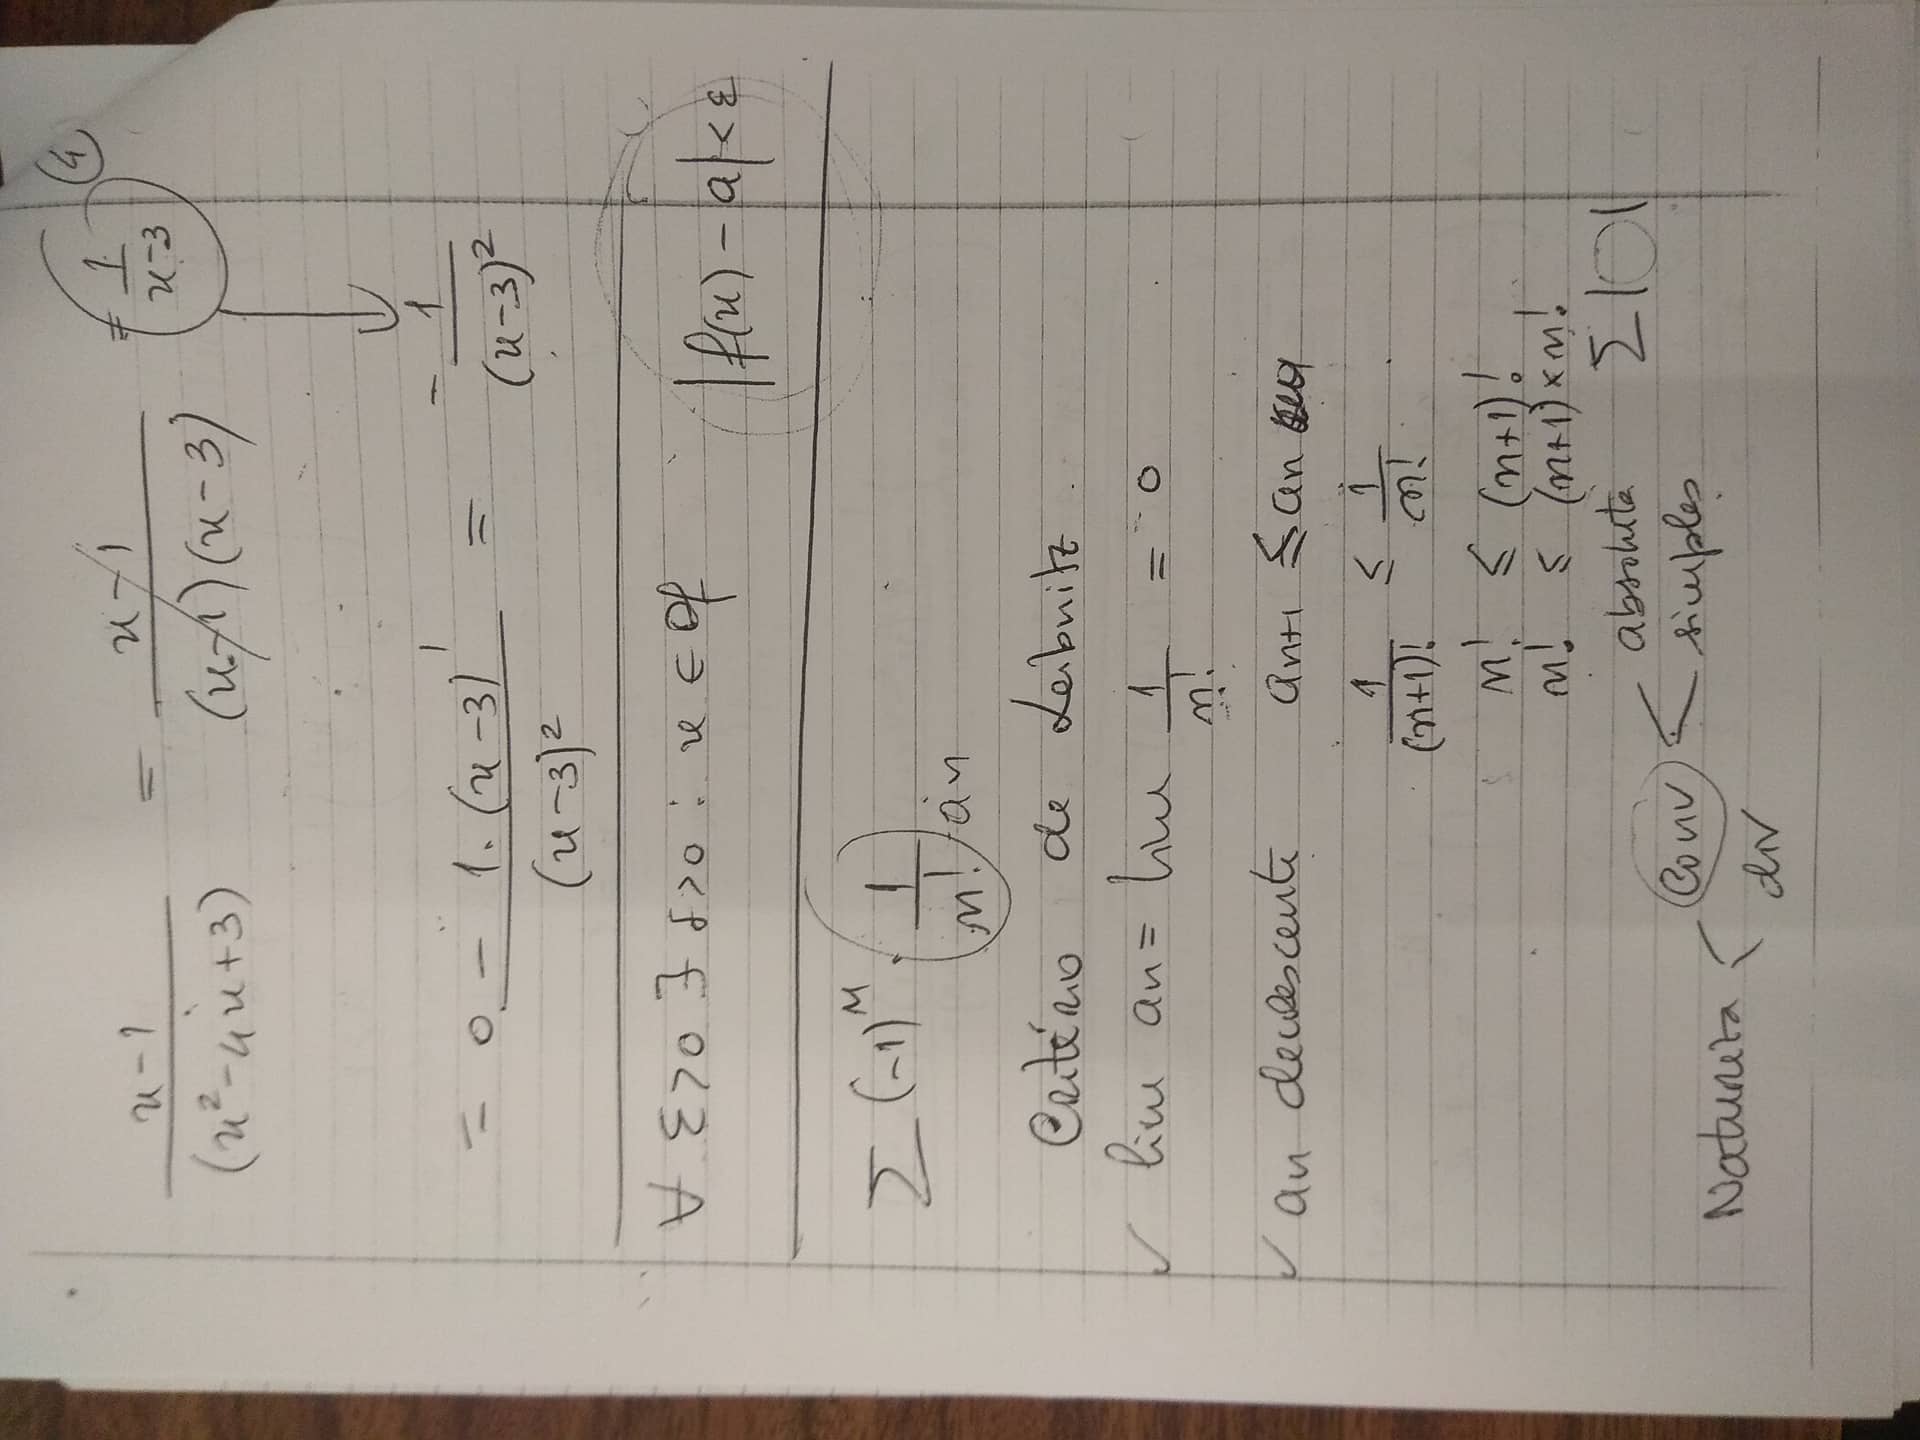 (4)
x-1/(x²-4x+3) = x-1/(x-1)(x-3) = 1/x-3
= 0 - 1.(x-3)'/(x-3)² = - 1/(x-3)²
∀ ε>0 ∃ δ>0 : x ∈ Df |f(x)-a|<ε
∑(-1)ⁿ . 1/n! an
Critério de Leibnitz
✓ lim an = lim 1/n! = 0
✓ an decrescente an+1 ≤ an
1/(n+1)! ≤ 1/n!
n! ≤ (n+1)!
n! ≤ (n+1)×n!
Natureza < Conv < absoluta ∑| |
simples
div